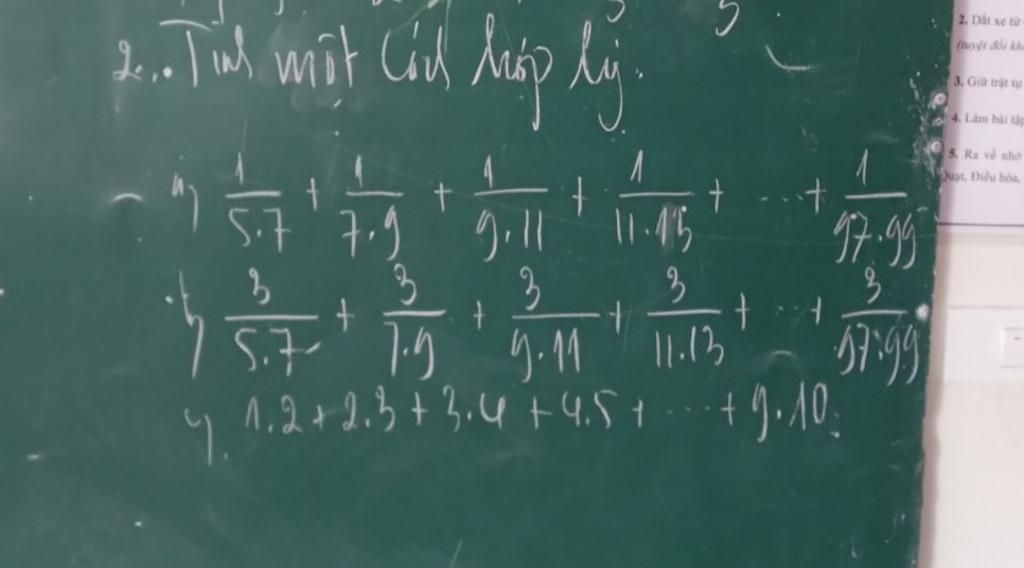 2. Tính một cách hợp lý.
a) 1/5.7 + 1/7.9 + 1/9.11 + 1/11.13 + ... + 1/97.99
b) 3/5.7 + 3/7.9 + 3/9.11 + 3/11.13 + ... + 3/97.99
c) 1.2 + 2.3 + 3.4 + 4.5 + ... + 9.10.
2. Dắt xe từ
(tuyệt đối
3. Giữ trật tự
4. Làm bài tập
5. Ra về nhớ
Quạt, Điều hòa,